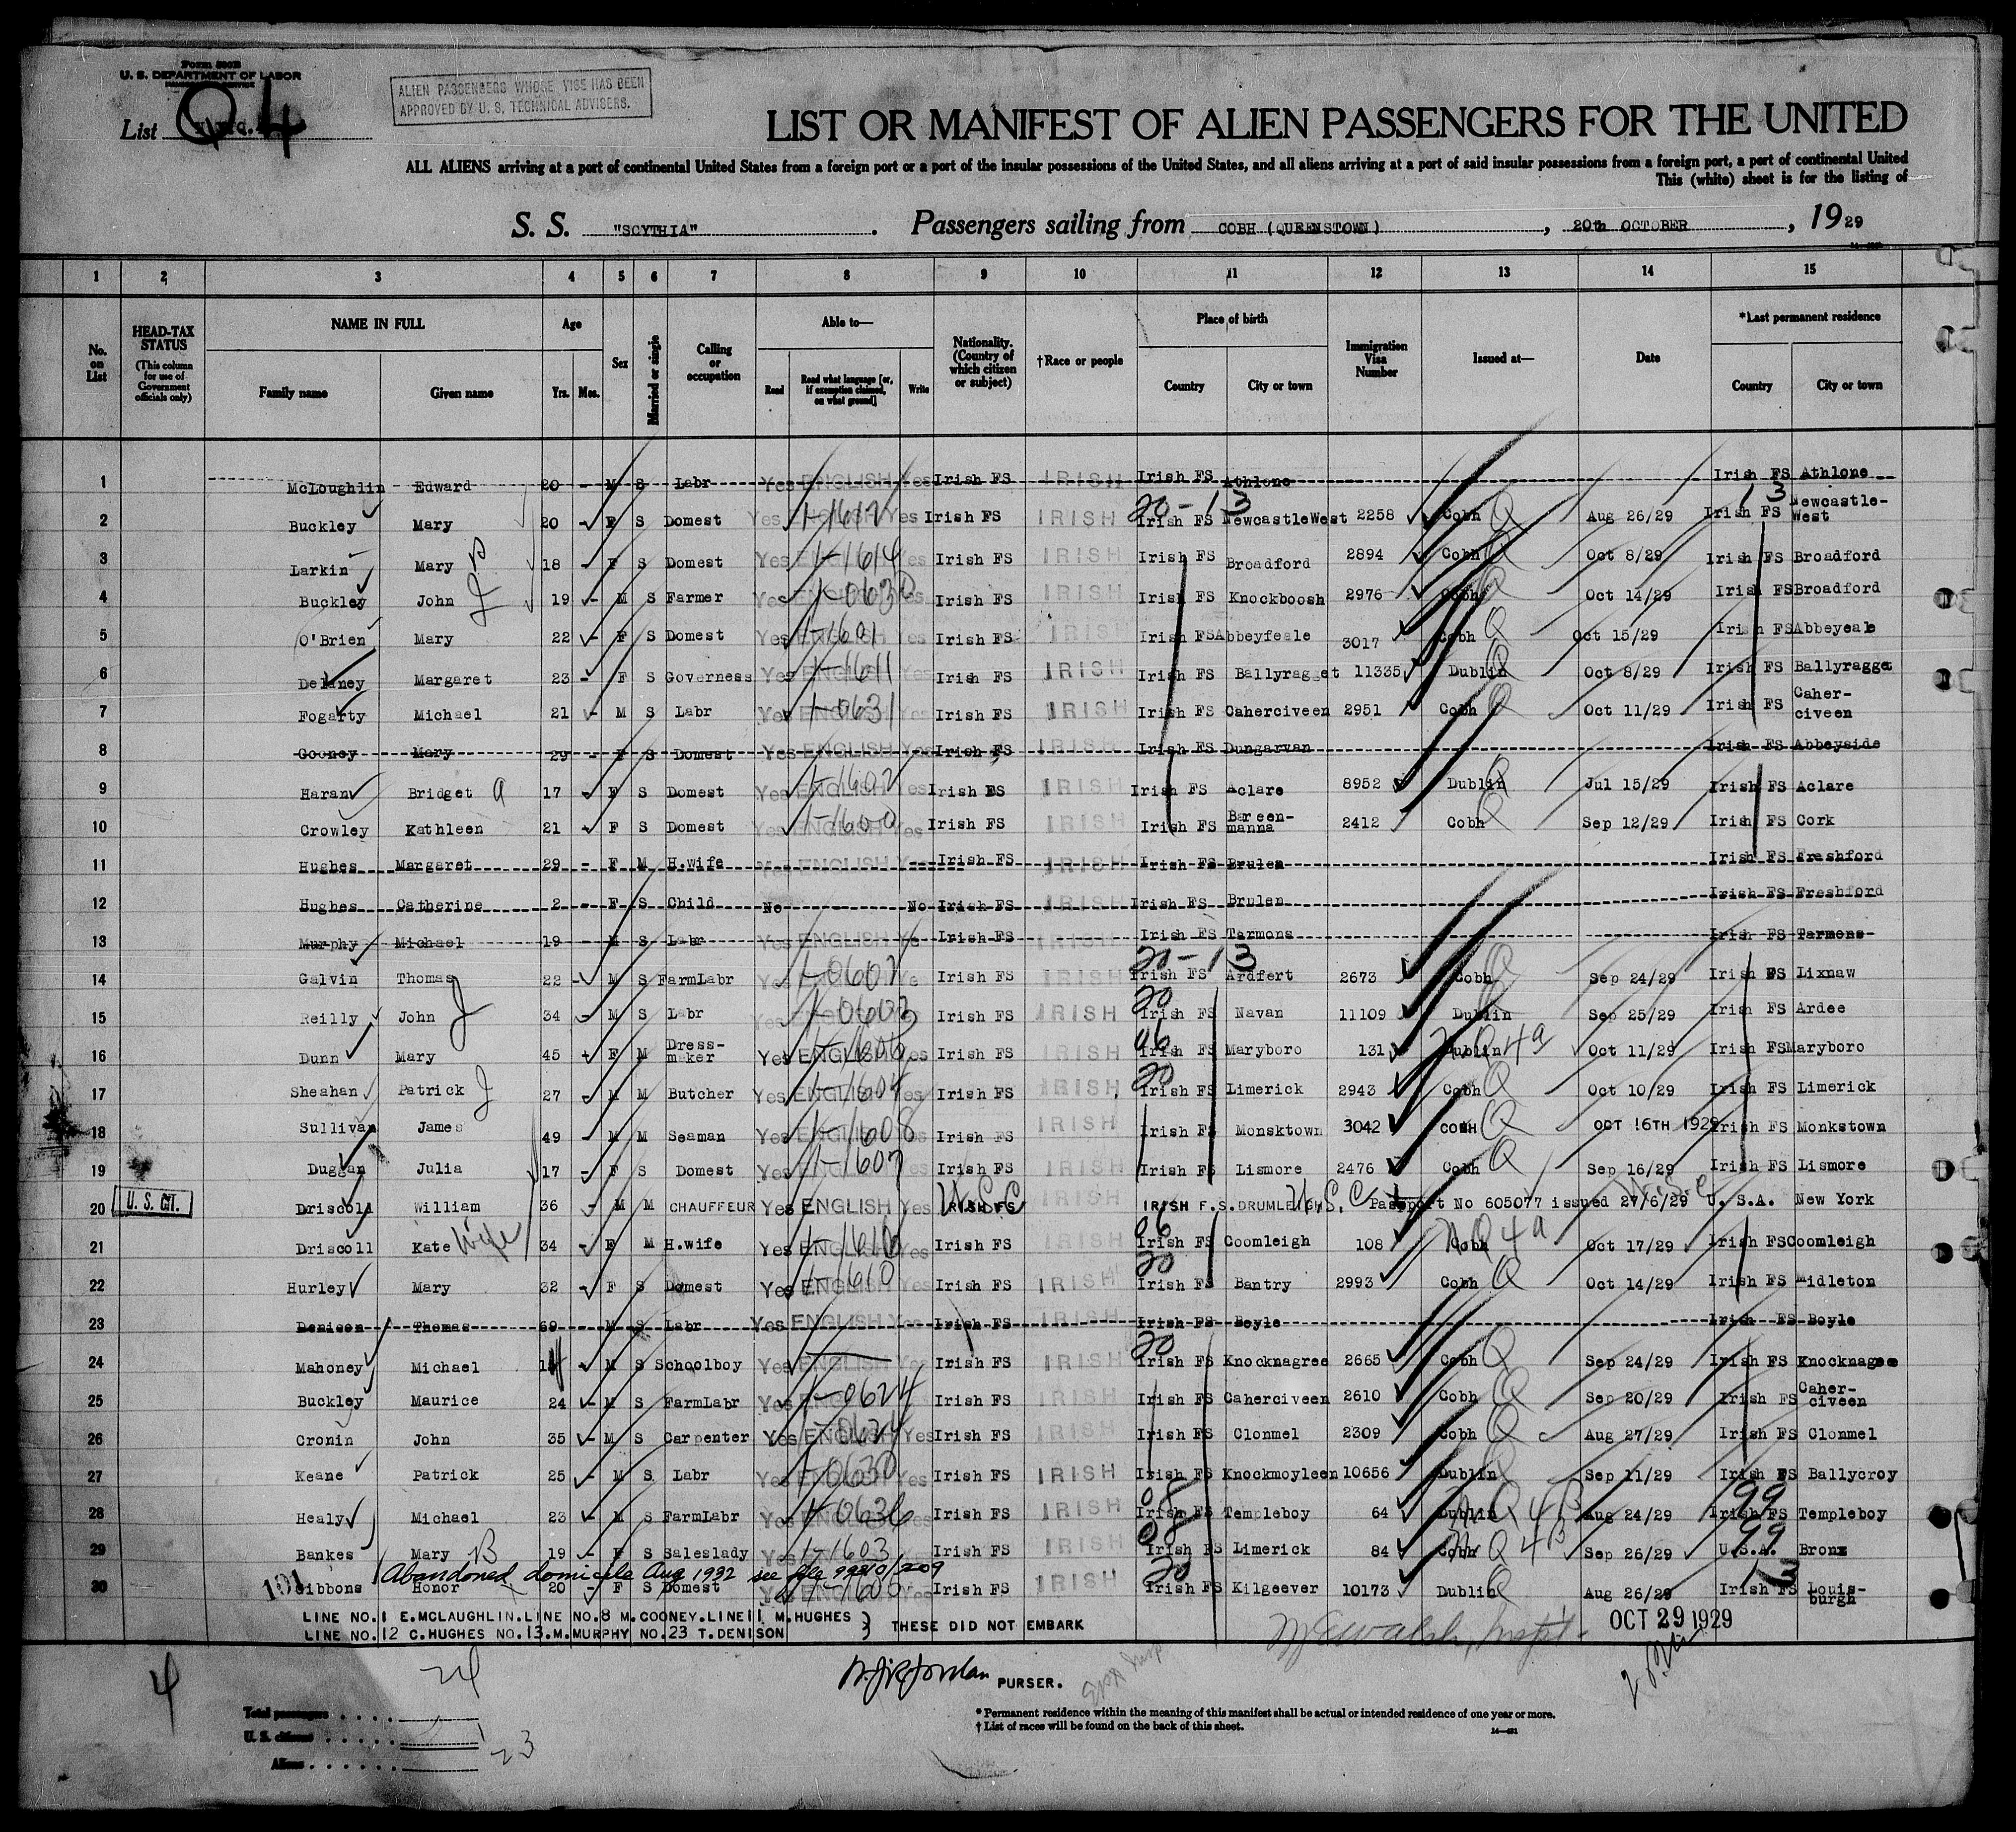 Form 500B
U. S. DEPARTMENT OF LABOR
IMMIGRATION SERVICE
List Q 4
ALIEN PASSENGERS WHOSE VISE HAS BEEN
APPROVED BY U. S. TECHNICAL ADVISERS.
LIST OR MANIFEST OF ALIEN PASSENGERS FOR THE UNITED
ALL ALIENS arriving at a port of continental United States from a foreign port or a port of the insular possessions of the United States, and all aliens arriving at a port of said insular possessions from a foreign port, a port of continental United
This (white) sheet is for the listing of
S. S. "SCYTHIA" . Passengers sailing from COBH (QUEENSTOWN) , 20th OCTOBER , 1929
1 2 3 4 5 6 7 8 9 10 11 12 13 14 15
No. on List HEAD-TAX STATUS (This column for use of Government officials only) NAME IN FULL Family name Given name Age Yrs. Mos. Sex Married or single Calling or occupation Able to— Read Read what language [or, if exemption claimed, on what ground] Write Nationality. (Country of which citizen or subject) †Race or people Place of birth Country City or town Immigration Visa Number Issued at— Date *Last permanent residence Country City or town
1 McLoughlin Edward 20 - M S Labr Yes ENGLISH Yes Irish FS IRISH Irish FS Athlone Irish FS Athlone
2 Buckley Mary 20 - F S Domest Yes ENGLISH 1-1612 Yes Irish FS IRISH 20-13 Irish FS NewcastleWest 2258 Cobh Q Aug 26/29 13 Irish FS Newcastle-West
3 Larkin Mary B 18 - F S Domest Yes ENGLISH 1-1614 Yes Irish FS IRISH Irish FS Broadford 2894 Cobh Q Oct 8/29 Irish FS Broadford
4 Buckley John J 19 - M S Farmer Yes 1-0630 Yes Irish FS IRISH Irish FS Knockboosh 2976 Cobh Q Oct 14/29 Irish FS Broadford
5 O'Brien Mary 22 - F S Domest Yes ENGLISH 1-1601 Yes Irish FS IRISH Irish FS Abbeyfeale 3017 Cobh Q Oct 15/29 Irish FS Abbeyeale
6 Delaney Margaret 23 - F S Governess Yes ENGLISH 1-1611 Yes Irish FS IRISH Irish FS Ballyragget 11335 Dublin Q Oct 8/29 Irish FS Ballyragget
7 Fogarty Michael 21 - M S Labr Yes ENGLISH 1-0631 Yes Irish FS IRISH Irish FS Caherciveen 2951 Cobh Q Oct 11/29 Irish FS Caher-civeen
8 Cooney Mary 29 - F S Domest Yes ENGLISH Yes Irish FS IRISH Irish FS Dungarvan Irish FS Abbeyside
9 Haran Bridget a 17 - F S Domest Yes ENGLISH 1-1602 Yes Irish FS IRISH Irish FS Aclare 8952 Dublin Q Jul 15/29 Irish FS Aclare
10 Crowley Kathleen 21 - F S Domest Yes ENGLISH 1-1600 Yes Irish FS IRISH Irish FS Bareen-manna 2412 Cobh Q Sep 12/29 Irish FS Cork
11 Hughes Margaret 29 - F M H.wife Yes ENGLISH Yes Irish FS IRISH Irish FS Brulen Irish FS Freshford
12 Hughes Catherine 2 - F S Child No No Irish FS IRISH Irish FS Brulen Irish FS Freshford
13 Murphy Michael 19 - M S Labr Yes ENGLISH Yes Irish FS IRISH Irish FS Tarmons Irish FS Tarmons
14 Galvin Thomas 22 - M S FarmLabr Yes 1-0602 Yes Irish FS IRISH 20-13 Irish FS Ardfert 2673 Cobh Q Sep 24/29 Irish FS Lixnaw
15 Reilly John J 34 - M S Labr Yes 1-0603 Irish FS IRISH 20 Irish FS Navan 11109 Dublin Q Sep 25/29 Irish FS Ardee
16 Dunn Mary 45 - F M Dress-maker Yes ENGLISH Yes Irish FS IRISH 06 Irish FS Maryboro 131 Dublin NQ4a Oct 11/29 Irish FS Maryboro
17 Sheahan Patrick J 27 - M M Butcher Yes ENGLISH 1-1604 Yes Irish FS IRISH 20 Irish FS Limerick 2943 Cobh Q Oct 10/29 Irish FS Limerick
18 Sullivan James 49 - M M Seaman Yes ENGLISH 1-1608 Irish FS IRISH Irish FS Monsktown 3042 COBH Q OCT 16TH 1929 Irish FS Monkstown
19 Duggan Julia 17 - F S Domest Yes ENGLISH 1-1607 Irish FS IRISH Irish FS Lismore 2476 Cobh Q Sep 16/29 Irish FS Lismore
20 U. S. CIT. Driscoll William 36 - M M CHAUFFEUR Yes ENGLISH Yes IRISH FS U.S.C IRISH IRISH F.S. DRUMLEIGH U.S.C Passport No 605077 issued 27/6/29 U.S.A. New York
21 Driscoll Kate Wife 34 - F M H.wife Yes ENGLISH 1-1616 Yes Irish FS IRISH 06 Irish FS Coomleigh 108 Cobh NQ4a Oct 17/29 Irish FS Coomleigh
22 Hurley Mary 32 - F S Domest Yes ENGLISH 1-1610 Yes Irish FS IRISH 20 Irish FS Bantry 2993 Cobh Q Oct 14/29 Irish FS Midleton
23 Denison Thomas 69 - M S Labr Yes ENGLISH Yes Irish FS IRISH Irish FS Boyle Irish FS Boyle
24 Mahoney Michael 14 - M S Schoolboy Yes ENGLISH Yes Irish FS IRISH 20 Irish FS Knocknagree 2665 Cobh Q Sep 24/29 Irish FS Knocknagree
25 Buckley Maurice 24 - M S FarmLabr Yes 1-0624 Irish FS IRISH Irish FS Caherciveen 2610 Cobh Q Sep 20/29 Irish FS Caher-civeen
26 Cronin John 35 - M S Carpenter Yes ENGLISH Yes Irish FS IRISH Irish FS Clonmel 2309 Cobh Q Aug 27/29 Irish FS Clonmel
27 Keane Patrick 25 - M S Labr Yes ENGLISH 1-0630 Yes Irish FS IRISH Irish FS Knockmoyleen 10656 Dublin Q Sep 11/29 Irish FS Ballycroy
28 Healy Michael 23 - M S FarmLabr Yes 1-0636 Irish FS IRISH 08 Irish FS Templeboy 64 Dublin NQ4B Aug 24/29 99 Irish FS Templeboy
29 Bankes Mary B 19 - F S Saleslady Yes 1-1603 Irish FS IRISH 08 Irish FS Limerick 84 Cobh NQ4B Sep 26/29 99 U.S.A. Bronx
Abandoned domicile Aug 1932 see file
30 101 Gibbons Honor 20 - F S Domest Yes ENGLISH Yes Irish FS IRISH 20 Irish FS Kilgeever 10173 Dublin Q Aug 26/29 13 Irish FS Louis-burgh
LINE NO.1 E.MCLAUGHLIN.LINE NO.8 M.COONEY.LINE11 M.HUGHES
LINE NO.12 C.HUGHES NO.13.M.MURPHY NO.23 T.DENISON } THESE DID NOT EMBARK
OCT 29 1929
4 24
PURSER.
Total passengers
U. S. citizens 1
Aliens 23
* Permanent residence within the meaning of this manifest shall be actual or intended residence of one year or more.
† List of races will be found on the back of this sheet.